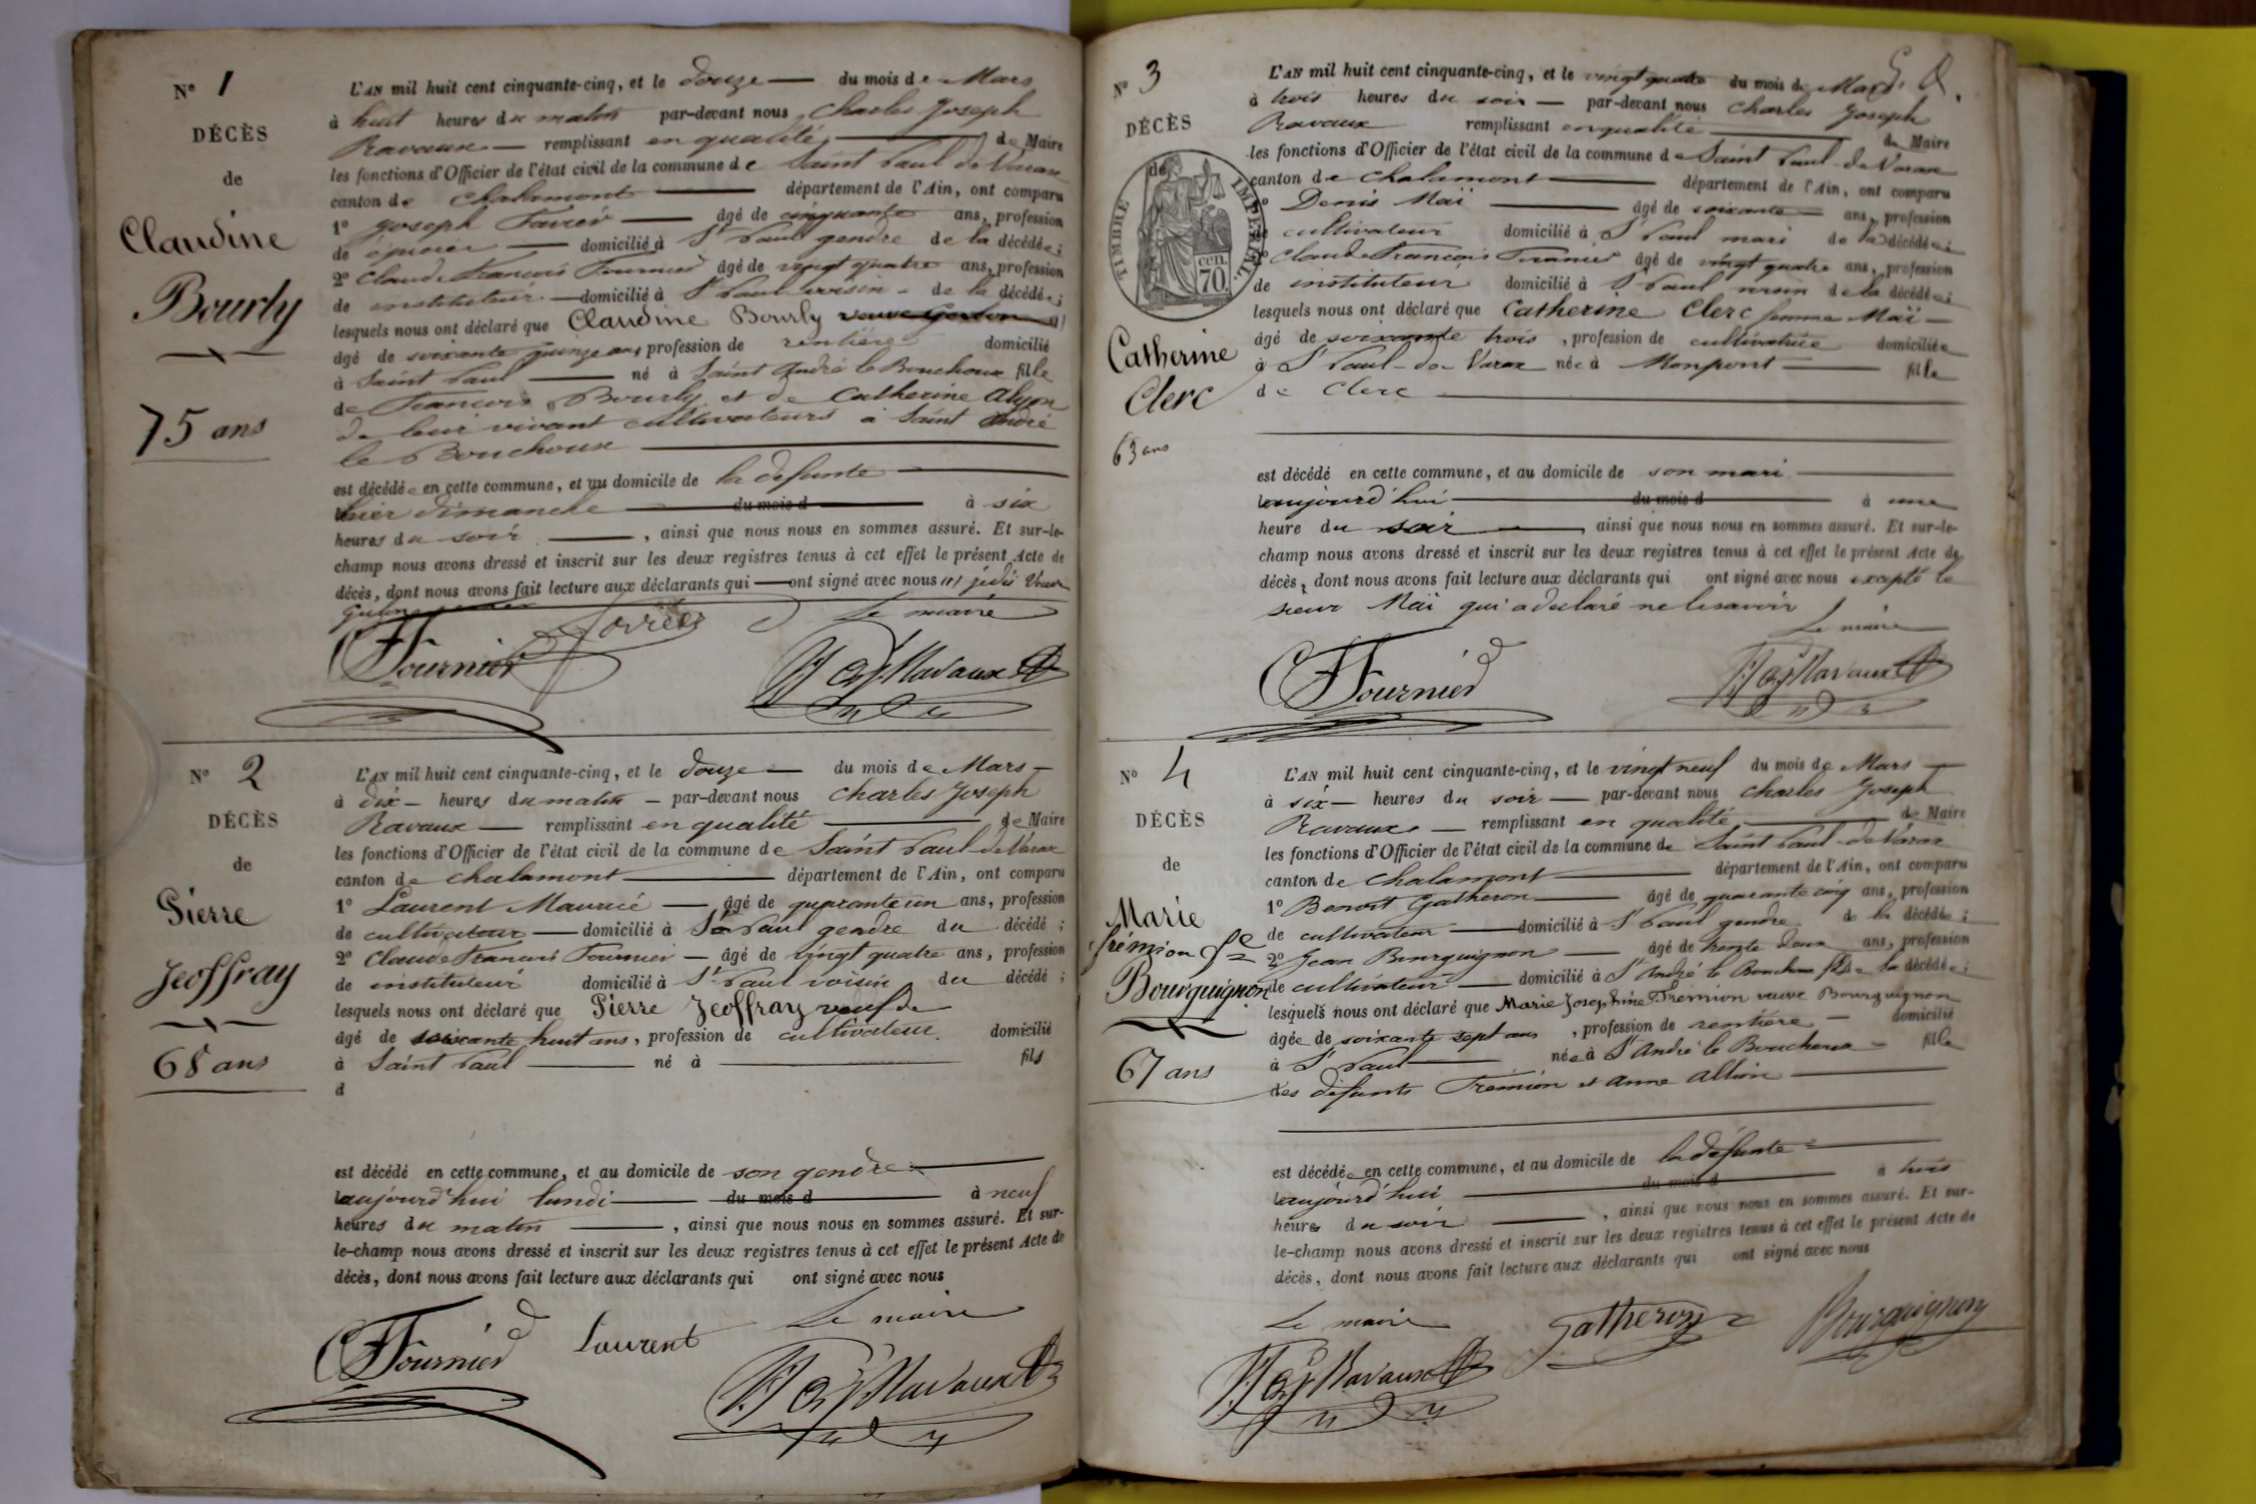 Nº 1
DÉCÈS
de
Claudine
Bourly
75 ans
L'AN mil huit cent cinquante-cinq, et le douze du mois de Mars
à huit heures du matin par-devant nous Charles Joseph
Ravaux remplissant en qualité de Maire
les fonctions d'Officier de l'état civil de la commune de Saint Paul de Varax
canton de Chalamont département de l'Ain, ont comparu
1º Joseph Favier âgé de cinquante ans, profession
de domicilié à St Paul gendre de la décédée ;
2º Claude François Fournier âgé de vingt quatre ans, profession
de instituteur domicilié à St Paul voisin de la décédée ;
lesquels nous ont déclaré que Claudine Bourly veuve
âgé de soixante quinze ans profession de rentière domicilié
à Saint Paul né à Saint André le Bouchoux fille
de François Bourly et de Catherine Alyon
de leur vivant cultivateurs à Saint André
le Bouchoux
est décédée en cette commune, et au domicile de la défunte
hier dimanche du mois d à six
heures du soir , ainsi que nous nous en sommes assuré. Et sur-le-
champ nous avons dressé et inscrit sur les deux registres tenus à cet effet le présent Acte de
décès, dont nous avons fait lecture aux déclarants qui ont signé avec nous
Fournier Favier Le maire
Ravaux
Nº 2
DÉCÈS
de
Pierre
Jeoffray
68 ans
L'AN mil huit cent cinquante-cinq, et le douze du mois de Mars
à dix heures du matin par-devant nous Charles Joseph
Ravaux remplissant en qualité de Maire
les fonctions d'Officier de l'état civil de la commune de Saint Paul de Varax
canton de Chalamont département de l'Ain, ont comparu
1º Laurent Maurice âgé de quarante un ans, profession
de cultivateur domicilié à St Paul gendre du décédé ;
2º Claude François Fournier âgé de vingt quatre ans, profession
de instituteur domicilié à St Paul voisin du décédé ;
lesquels nous ont déclaré que Pierre Jeoffray veuf de
âgé de soixante huit ans, profession de cultivateur domicilié
à Saint Paul né à fils
d
est décédé en cette commune, et au domicile de son gendre
aujourd'hui lundi du mois d à neuf
heures du matin , ainsi que nous nous en sommes assuré. Et sur-
le-champ nous avons dressé et inscrit sur les deux registres tenus à cet effet le présent Acte de
décès, dont nous avons fait lecture aux déclarants qui ont signé avec nous
Fournier Laurent Le maire
Ravaux
Nº 3
DÉCÈS
de
TIMBRE IMPERIAL
CEN. 70.
Catherine
Clerc
63 ans
L'AN mil huit cent cinquante-cinq, et le vingt quatre du mois de Mars
à trois heures du soir par-devant nous Charles Joseph
Ravaux remplissant en qualité de Maire
les fonctions d'Officier de l'état civil de la commune de Saint Paul de Varax
canton de Chalamont département de l'Ain, ont comparu
1º Denis Maï âgé de soixante ans, profession
de cultivateur domicilié à St Paul mari de la décédée ;
2º Claude François Fournier âgé de vingt quatre ans, profession
de instituteur domicilié à St Paul voisin de la décédée ;
lesquels nous ont déclaré que Catherine Clerc femme Maï
âgé de soixante trois , profession de cultivatrice domiciliée
à St Paul de Varax née à Monpont fille
de Clerc
est décédé en cette commune, et au domicile de son mari
aujourd'hui du mois d à une
heure du soir , ainsi que nous nous en sommes assuré. Et sur-le-
champ nous avons dressé et inscrit sur les deux registres tenus à cet effet le présent Acte de
décès, dont nous avons fait lecture aux déclarants qui ont signé avec nous excepté le
sieur Maï qui a déclaré ne le savoir
Le maire
Fournier Ravaux
Nº 4
DÉCÈS
de
Marie
Frémion Fe
Bourguignon
67 ans
L'AN mil huit cent cinquante-cinq, et le vingt neuf du mois de Mars
à six heures du soir par-devant nous Charles Joseph
Ravaux remplissant en qualité de Maire
les fonctions d'Officier de l'état civil de la commune de Saint Paul de Varax
canton de Chalamont département de l'Ain, ont comparu
1º Benoit Gatheron âgé de quarante cinq ans, profession
de cultivateur domicilié à St Paul gendre de la décédée ;
2º Jean Bourguignon âgé de trente deux ans, profession
de cultivateur domicilié à St André le Bouchoux fils de la décédée ;
lesquels nous ont déclaré que Marie Josephine Frémion veuve Bourguignon
âgée de soixante sept ans , profession de rentière domicilié
à St Paul née à St André le Bouchoux fille
des défunts Frémion et Anne Allion
est décédée en cette commune, et au domicile de la défunte
aujourd'hui du mois d à trois
heures du soir , ainsi que nous nous en sommes assuré. Et sur-
le-champ nous avons dressé et inscrit sur les deux registres tenus à cet effet le présent Acte de
décès, dont nous avons fait lecture aux déclarants qui ont signé avec nous
Le maire Gatheron Bourguignon
Ravaux